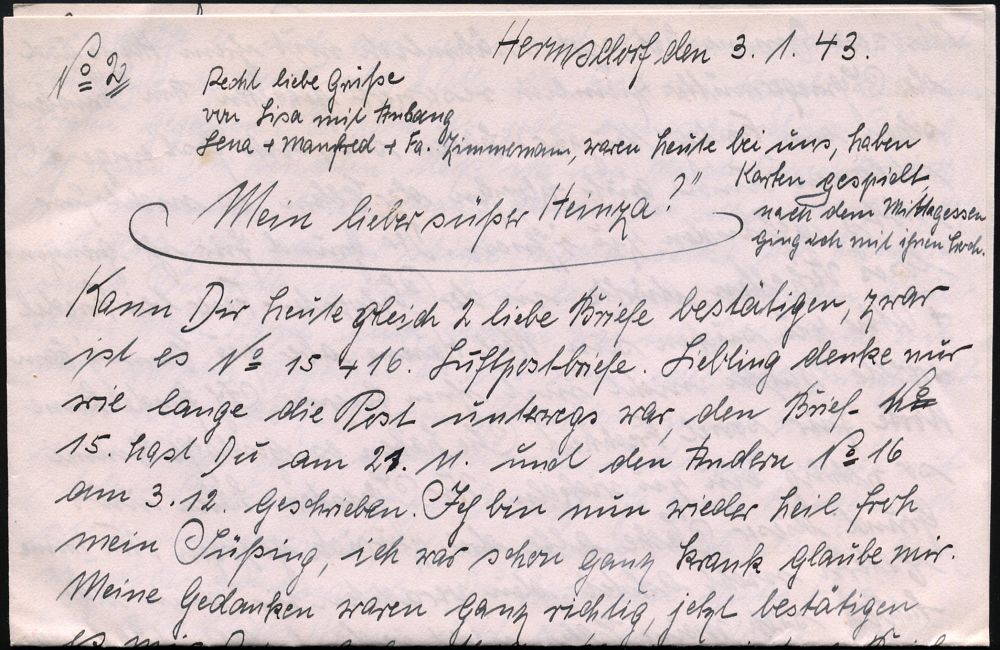 Nº 2
Hermsdorf, den 3.1.43.
Recht liebe Grüße
von Lisa mit Anhang
Lena + Manfred + Fa. Zimmermann, waren heute bei uns, haben
Karten gespielt,
nach dem Mittagessen
ging ich mit ihnen hoch.
Mein lieber süßer Heinza!"
Kann Dir heute gleich 2 liebe Briefe bestätigen, zwar
ist es Nº 15 + 16. Luftpostbriefe. Liebling denke nur
wie lange die Post unterwegs war, den Brief
15. hast Du am 21. 11. und den Andern Nº 16
am 3.12 geschrieben. Ich bin nun wieder heil froh
mein Süßing, ich war schon ganz krank glaube mir.
Meine Gedanken waren ganz richtig, jetzt bestätigen
es mir